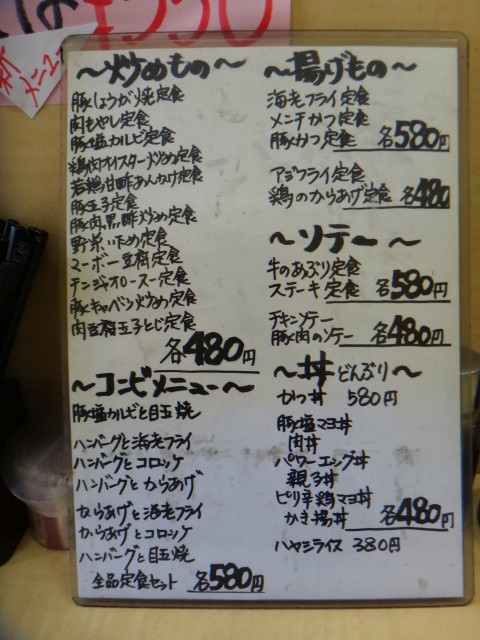 は¥550
新メニュー
～炒めもの～
豚しょうが焼定食
肉もやし定食
豚塩カルビ定食
鶏肉オイスター炒め定食
若鶏甘酢あんかけ定食
豚玉子定食
豚肉黒酢炒め定食
野菜いため定食
マーボー豆腐定食
チンジャオロースー定食
豚キャベツ炒め定食
肉豆腐玉子とじ定食
各480円
～コンビメニュー～
豚塩カルビと目玉焼
ハンバーグと海老フライ
ハンバーグとコロッケ
ハンバーグとからあげ
からあげと海老フライ
からあげとコロッケ
ハンバーグと目玉焼
全品定食セット 各580円
～揚げもの～
海老フライ定食
メンチかつ定食
豚かつ定食 各580円
アジフライ定食
鶏のからあげ定食 各480
～ソテー～
牛のあぶり定食
ステーキ定食 各580円
チキンソテー
豚肉のソテー 各480円
～丼どんぶり～
かつ丼 580円
豚塩マヨ丼
肉丼
パワーエッグ丼
親子丼
ピリ辛鶏マヨ丼
かき揚丼 各480円
ハヤシライス 380円